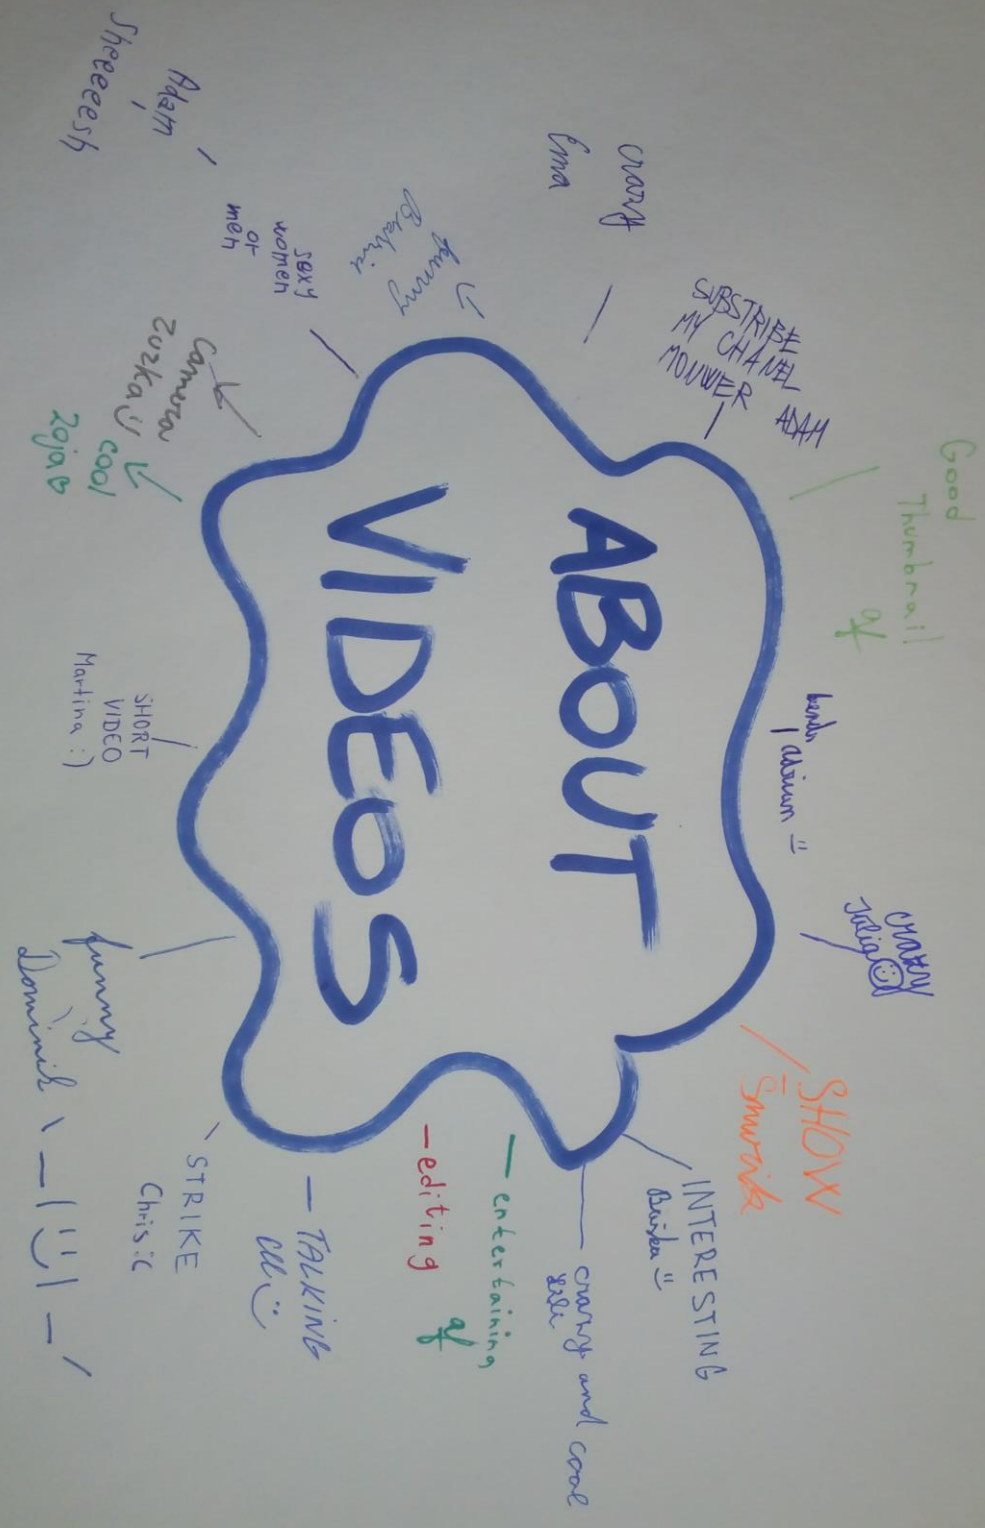 ABOUT
VIDEOS
Good
Thumbnail
af
SUBSTRIBE
MY CHANEL
MONWER ADAM
crazy
Ema
funny
sexy
women
or
men
Adam
Sheeeeesh
Camera
Zuzka :)
cool
Zoja
SHORT
VIDEO
Martina :)
funny
Dominik \_(:))_/
STRIKE
Chris :(
TALKING
editing
entertaining
af
crazy and cool
INTERESTING
SHOW
crazy
Júlia